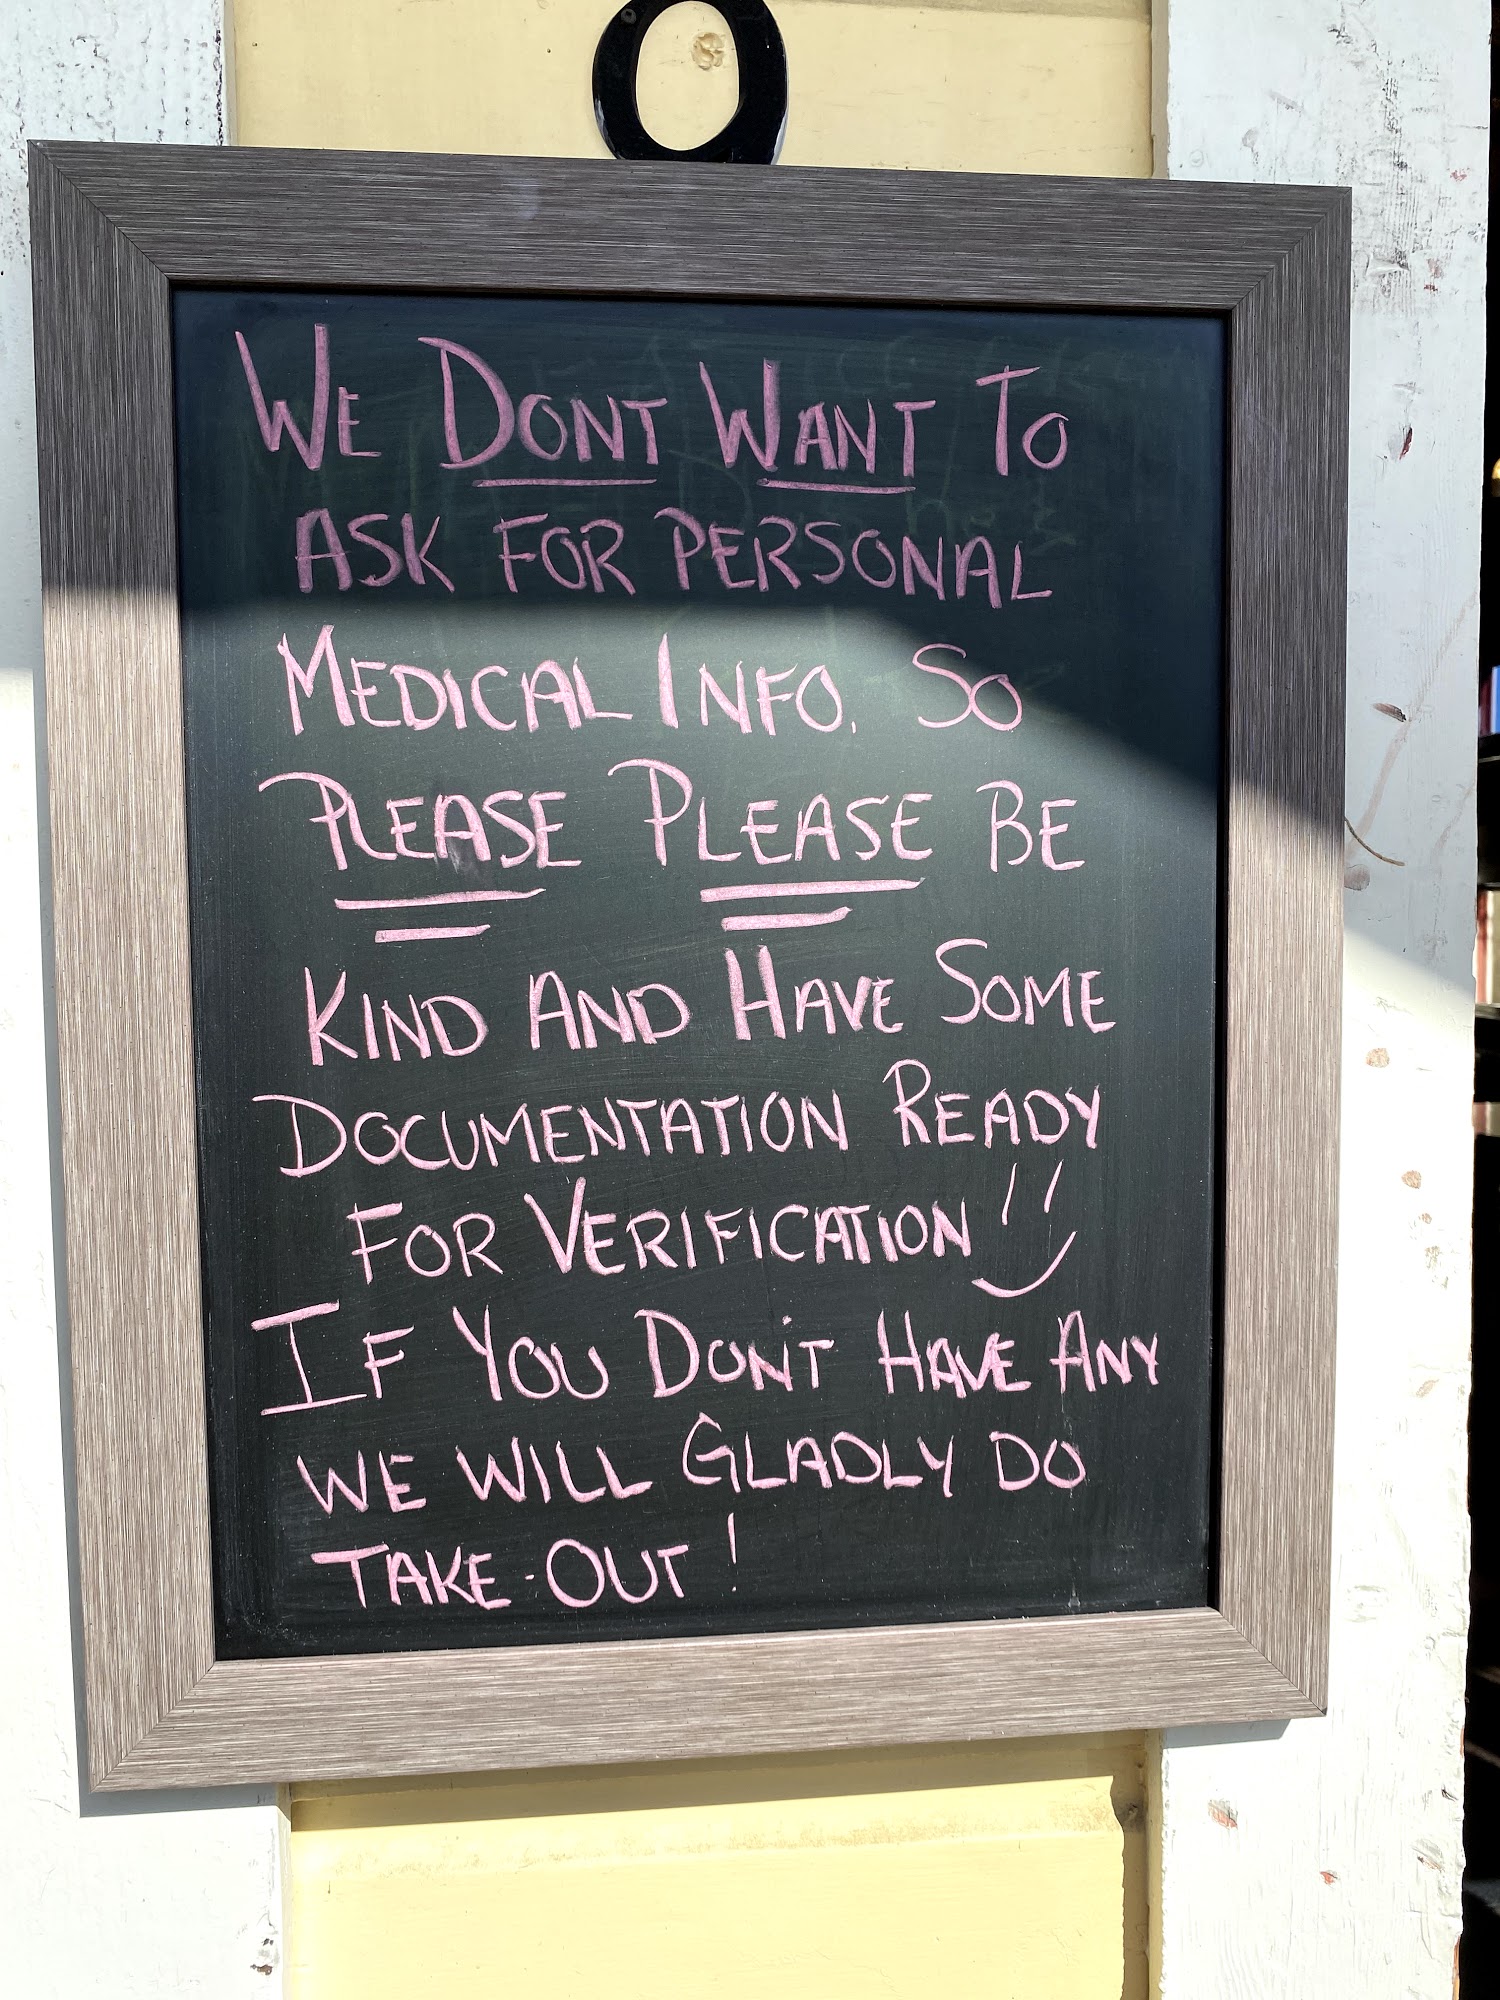 O
WE DONT WANT TO
ASK FOR PERSONAL
MEDICAL INFO. SO
PLEASE PLEASE BE
KIND AND HAVE SOME
DOCUMENTATION READY
FOR VERIFICATION
IF YOU DON'T HAVE ANY
WE WILL GLADLY DO
TAKE-OUT!